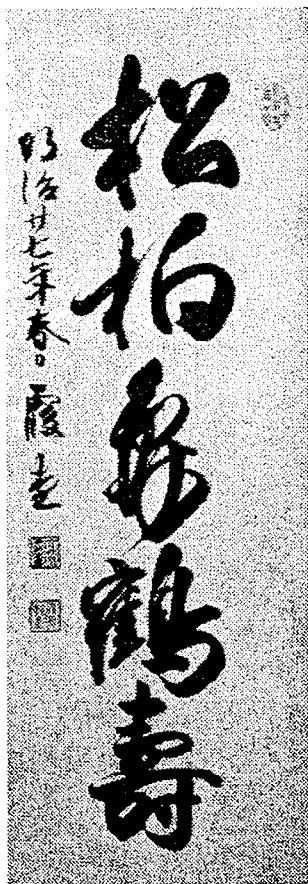 松柏龜鶴壽
明治廿七年春日 霞